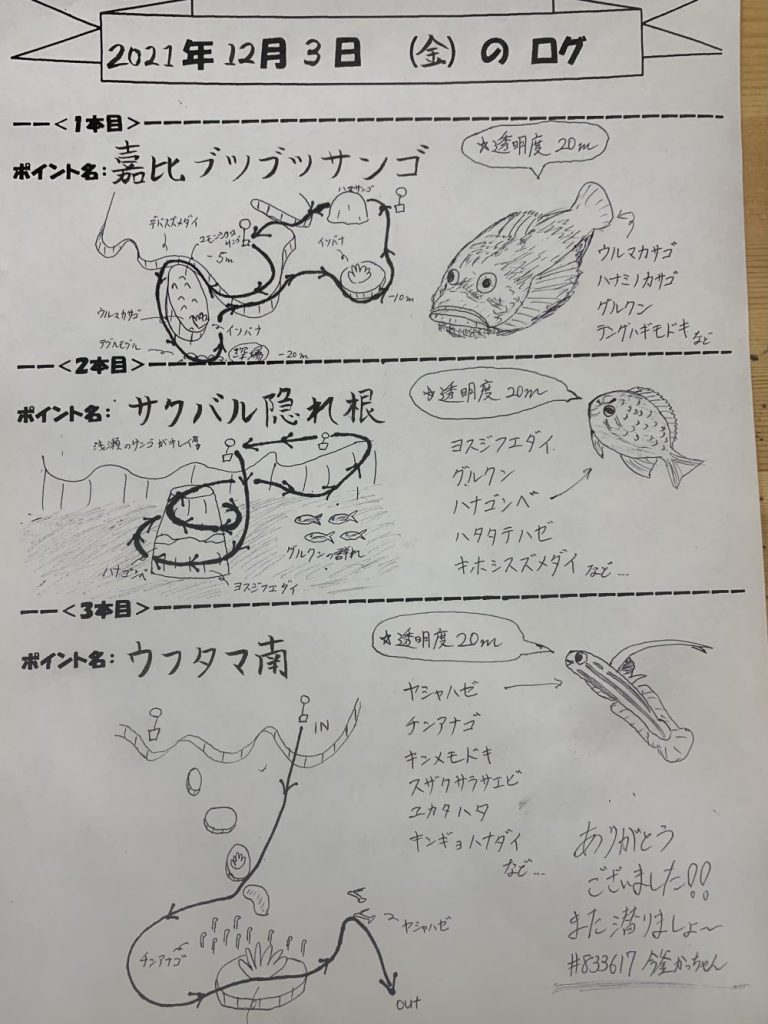 2021年12月3日 (金) の ログ
<1本目>
ポイント名: 嘉比ブツブツサンゴ
☆透明度 20m
ハマサンゴ
デバスズメダイ
コモンシコロサンゴ
-5m
イソバナ
-10m
ウルマカサゴ
イソバナ
テブルモヅル
深場
-20m
ウルマカサゴ
ハナミノカサゴ
グルクン
テングハギモドキ など
<2本目>
ポイント名: サクバル隠れ根
☆透明度 20m
浅瀬のサンゴがキレイ
ハナゴンベ
ヨスジフエダイ
グルクンの群れ
ヨスジフエダイ
グルクン
ハナゴンベ
ハタタテハゼ
キホシスズメダイ など…
<3本目>
ポイント名: ウフタマ南
☆透明度 20m
IN
チンアナゴ
ヤシャハゼ
out
ヤシャハゼ
チンアナゴ
キンメモドキ
スザクサラサエビ
ユカタハタ
キンギョハナダイ
など…
ありがとう
ございました!!
また潜りましょ〜
#833617 今釜かっちゃん